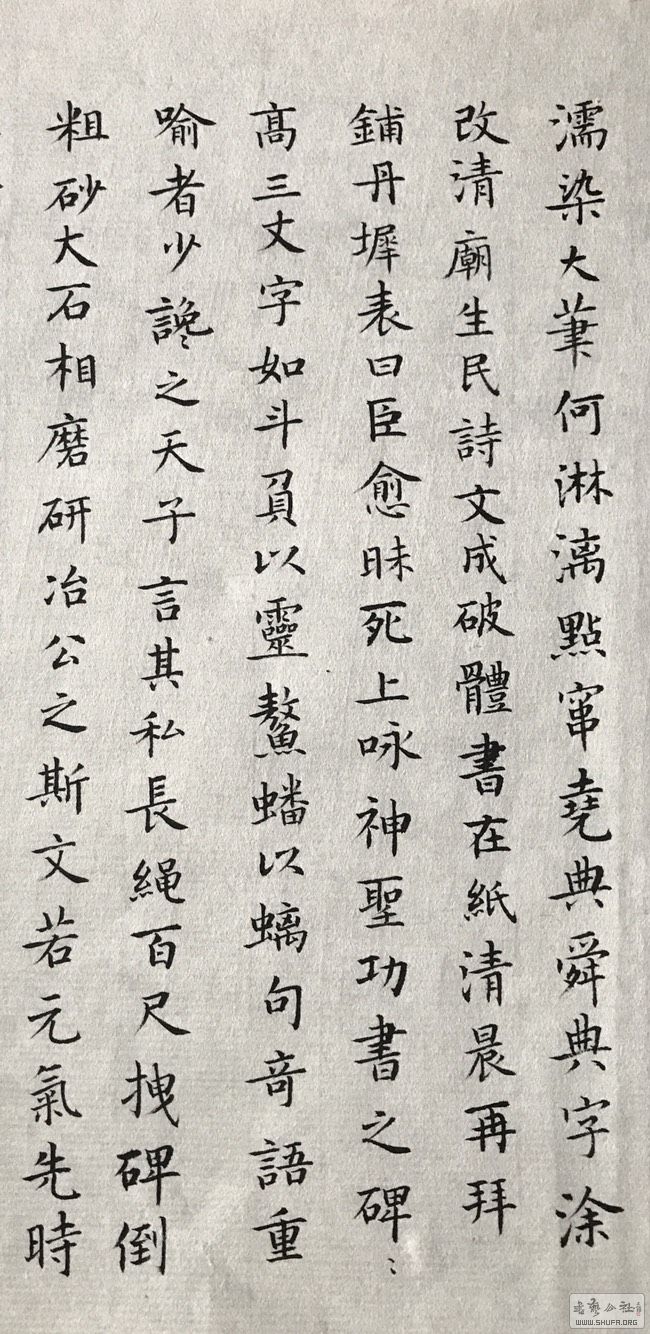 濡染大筆何淋漓點竄堯典舜典字涂
改清廟生民詩文成破體書在紙清晨再拜
鋪丹墀表曰臣愈昧死上咏神聖功書之碑〻
高三丈字如斗負以靈鰲蟠以螭句奇語重
喻者少讒〻之天子言其私長繩百尺拽碑倒
粗砂大石相磨研冶公之斯文若元氣先時
书艺公社
WWW.SHUFA.ORG